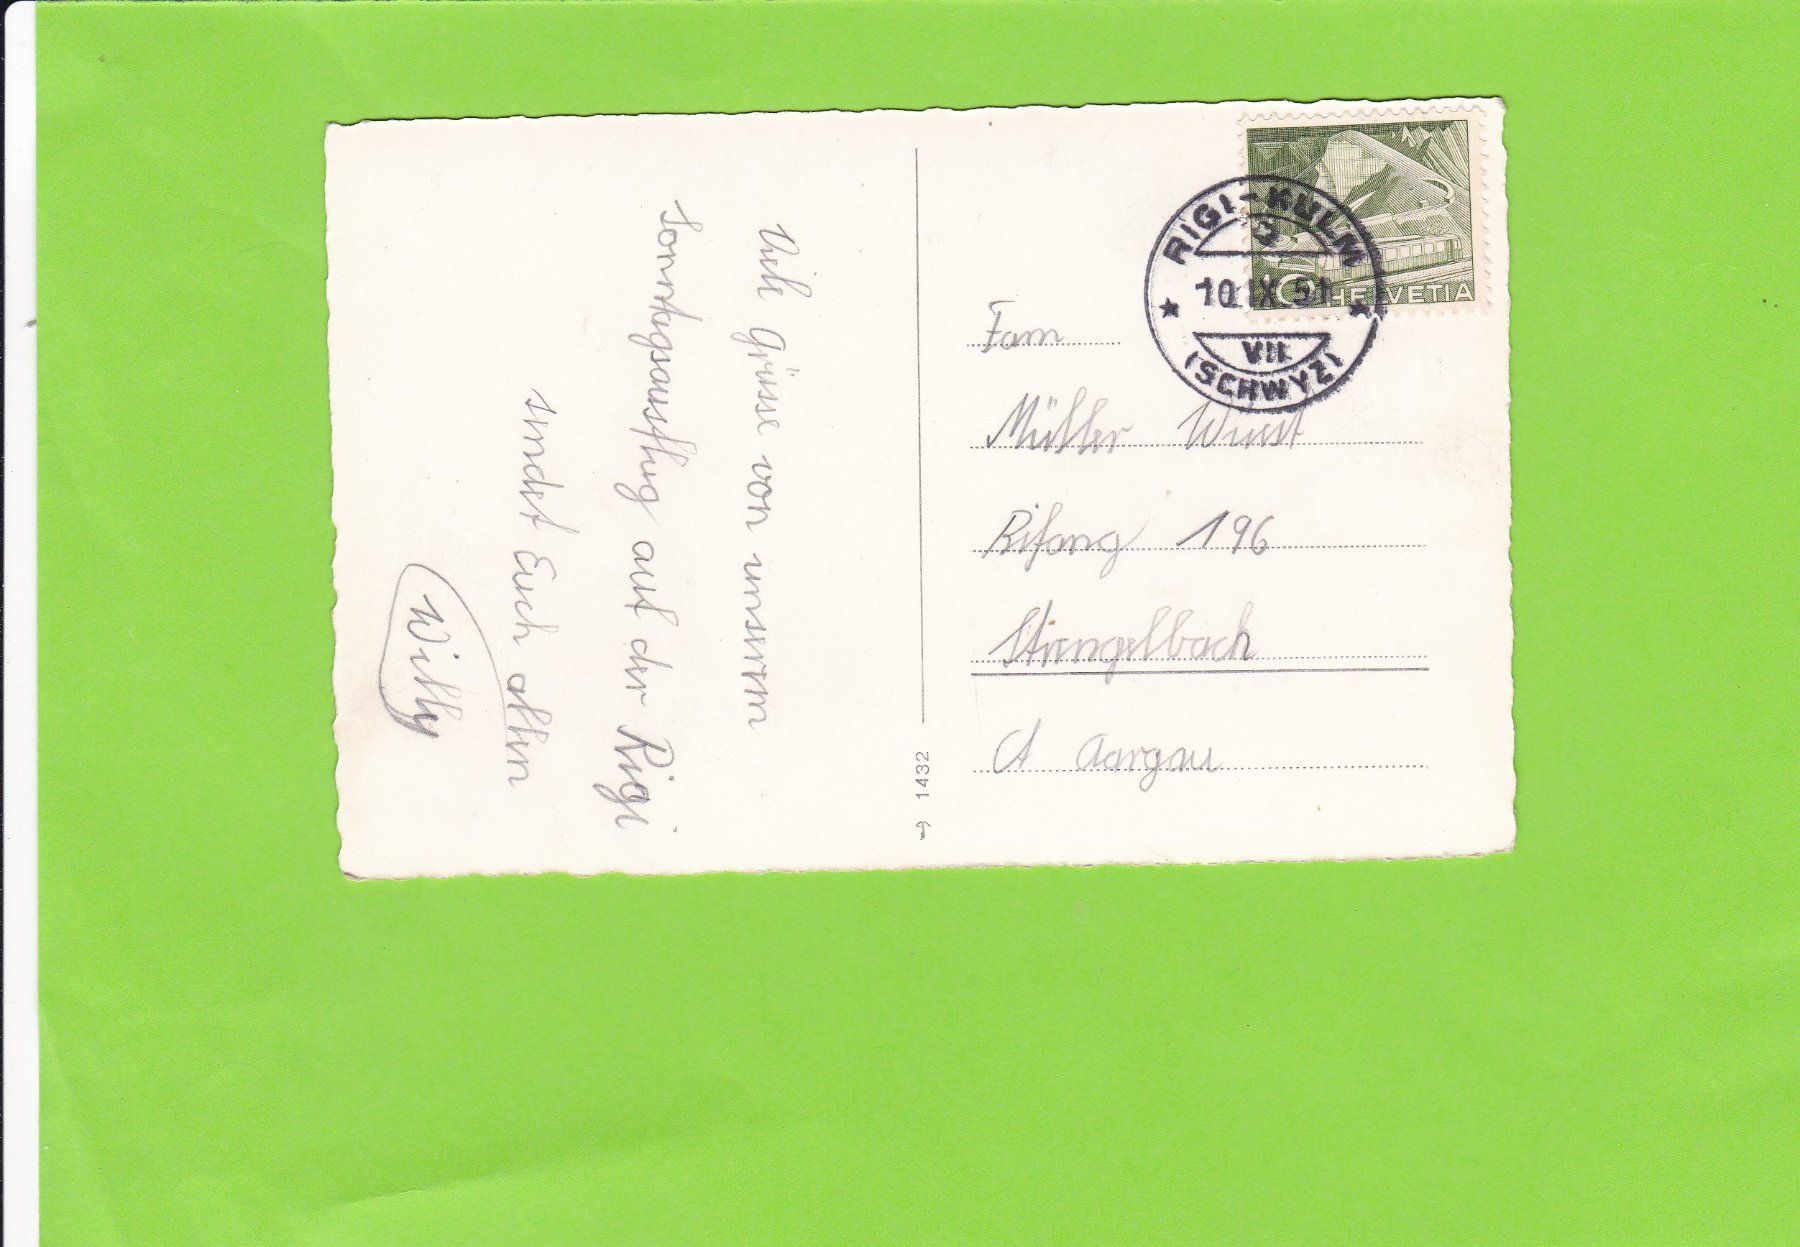 Viele Grüsse von unserem
Sonntagsausflug auf der Rigi
sendet Euch allen
Willy
1432
RIGI-KULM
10.IX.51
VII
(SCHWYZ)
HELVETIA
Fam
Müller Wuest
Bifang 196
Strengelbach
Ct Aargau